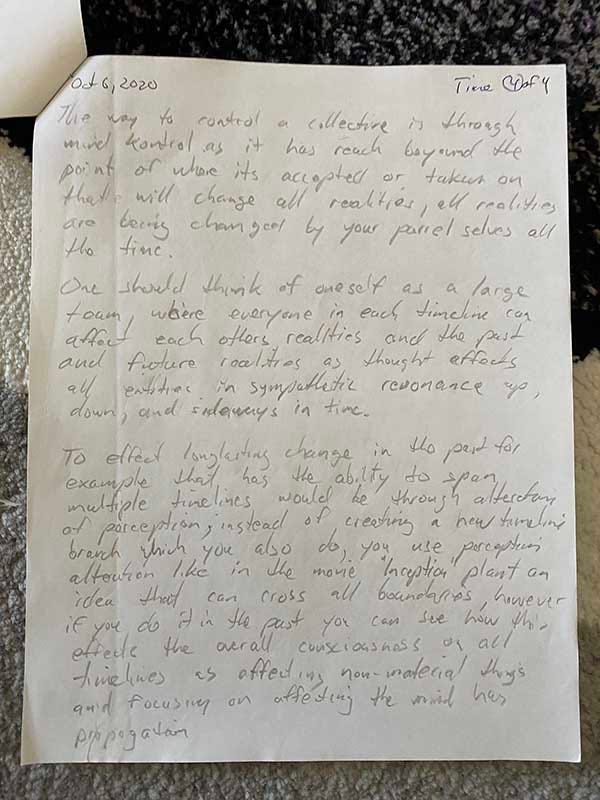 Oct 6, 2020
Time 4 of 4
The way to control a collective is through
mind kontrol as it has reach boyound the
point of where its accepted or taken on
that will change all realities, all realities
are being changed by your parrel selves all
the time.
One should think of oneself as a large
team, where everyone in each timeline can
affect each others realities and the past
and future realities as thought affects
all entities in sympathetic resonance up,
down, and sideways in time.
To effect longlasting change in the past for
example that, has the ability to span
multiple timelines would be through alteration
of perception, instead of creating a new timeline
branch which you also do, you use perception
alteration like in the movie "Inception" plant an
idea that can cross all boundaries, however
if you do it in the past you can see how this
effects the overall consciousness on all
timelines as affecting non-material things
and focusing on affecting the mind has
propogation